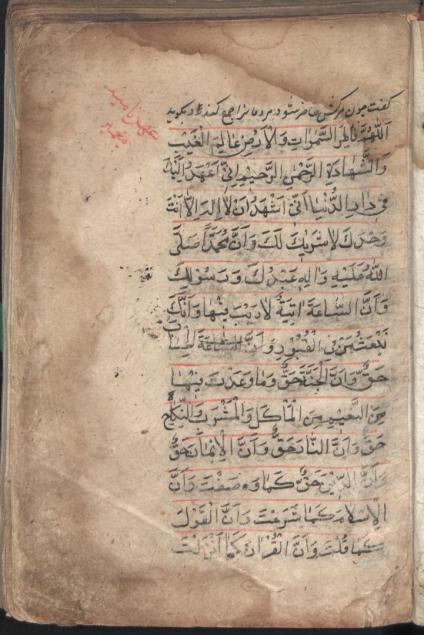 گفت چون مرگش حاضر شود مردمانرا جمع کند و بگوید
اَللّٰهُمَّ فَاطِرَ السَّمٰوَاتِ وَالْاَرْضِ عَالِمَ الْغَیْبِ
وَالشَّهَادَةِ الرَّحْمٰنَ الرَّحِیمَ اِنِّی اَعْهَدُ اِلَیْكَ
فِی دَارِ الدُّنْیَا اَنِّی اَشْهَدُ اَنْ لَا اِلٰهَ اِلَّا اَنْتَ
وَحْدَكَ لَا شَرِیكَ لَكَ وَاَنَّ مُحَمَّدًا صَلَّی
اللّٰهُ عَلَیْهِ وَاٰلِهِ عَبْدُكَ وَرَسُولُكَ
وَاَنَّ السَّاعَةَ اٰتِیَةٌ لَا رَیْبَ فِیهَا وَاَنَّكَ
تَبْعَثُ مَنْ فِی الْقُبُورِ وَاَنَّ الْحِسَابَ
حَقٌّ وَاَنَّ الْجَنَّةَ حَقٌّ وَمَا وَعَدْتَ فِیهَا
مِنَ النَّعِیمِ مِنَ الْمَاْكَلِ وَالْمَشْرَبِ وَالنِّكَاحِ
حَقٌّ وَاَنَّ النَّارَ حَقٌّ وَاَنَّ الْاِیْمَانَ حَقٌّ
وَاَنَّ الدِّیْنَ حَقٌّ كَمَا وَصَفْتَ وَاَنَّ
الْاِسْلَامَ كَمَا شَرَعْتَ وَاَنَّ الْقَوْلَ
كَمَا قُلْتَ وَاَنَّ الْقُرْاٰنَ كَمَا اَنْزَلْتَ